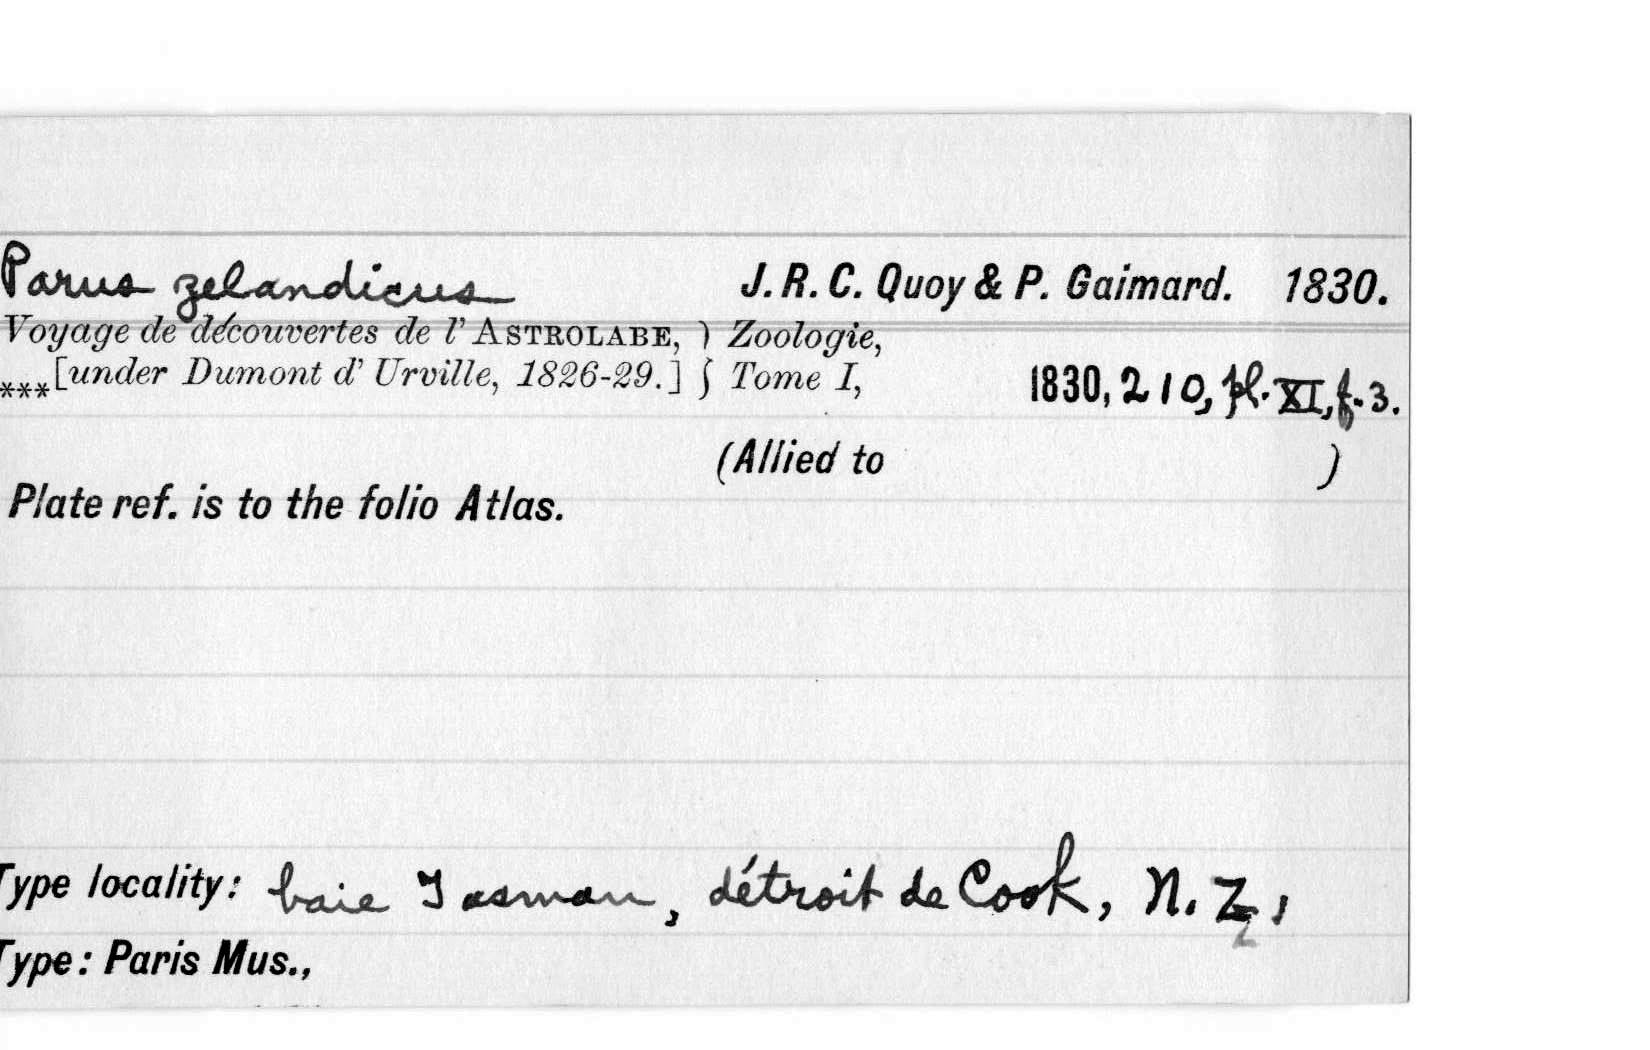 Parus zelandicus J. R. C. Quoy & P. Gaimard. 1830.
Voyage de découvertes de l' ASTROLABE, ) Zoologie,
***[under Dumont d' Urville, 1826-29.] } Tome I, 1830, 210, pl. XI, f. 3.
(Allied to )
Plate ref. is to the folio Atlas.
Type locality: baie Tasman, détroit de Cook, N. Z.,
Type: Paris Mus.,